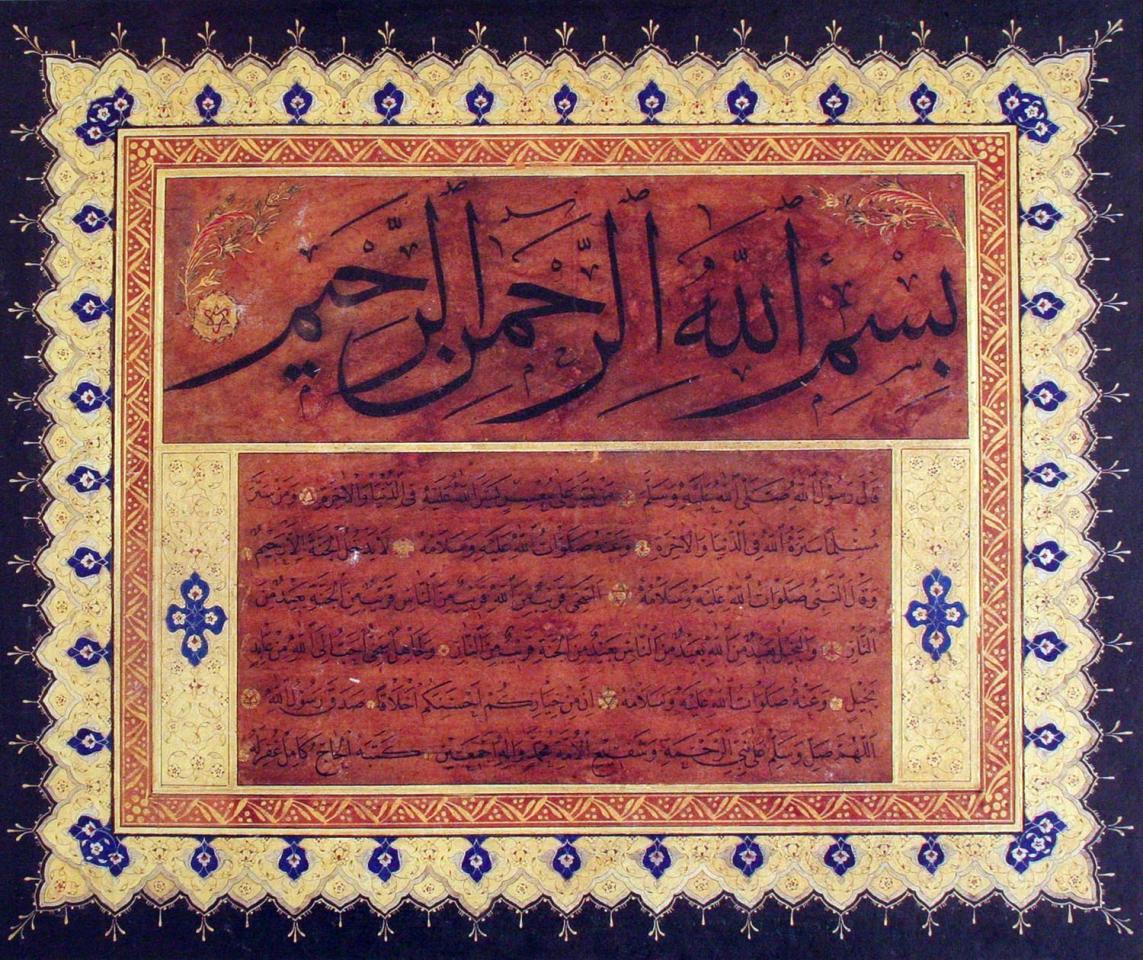 بسم الله الرحمن الرحيم
قال رسول الله صلى الله عليه وسلم من يسر على معسر يسر الله عليه في الدنيا والآخرة ومن ستر
مسلما ستره الله في الدنيا والآخرة وعنه صلوات الله عليه وسلامه لا يدخل الجنة إلا رحيم
وقال النبي صلوات الله عليه وسلامه السخي قريب من الله قريب من الناس قريب من الجنة بعيد من
النار والبخيل بعيد من الله بعيد من الناس بعيد من الجنة قريب من النار ولجاهل سخي أحب إلى الله من عابد
بخيل وعنه صلوات الله عليه وسلامه إن من خياركم أحسنكم أخلاقا صدق رسول الله
اللهم صل وسلم على نبي الرحمة وشفيع الأمة محمد وآله أجمعين كتبه الحاج كامل غفر له